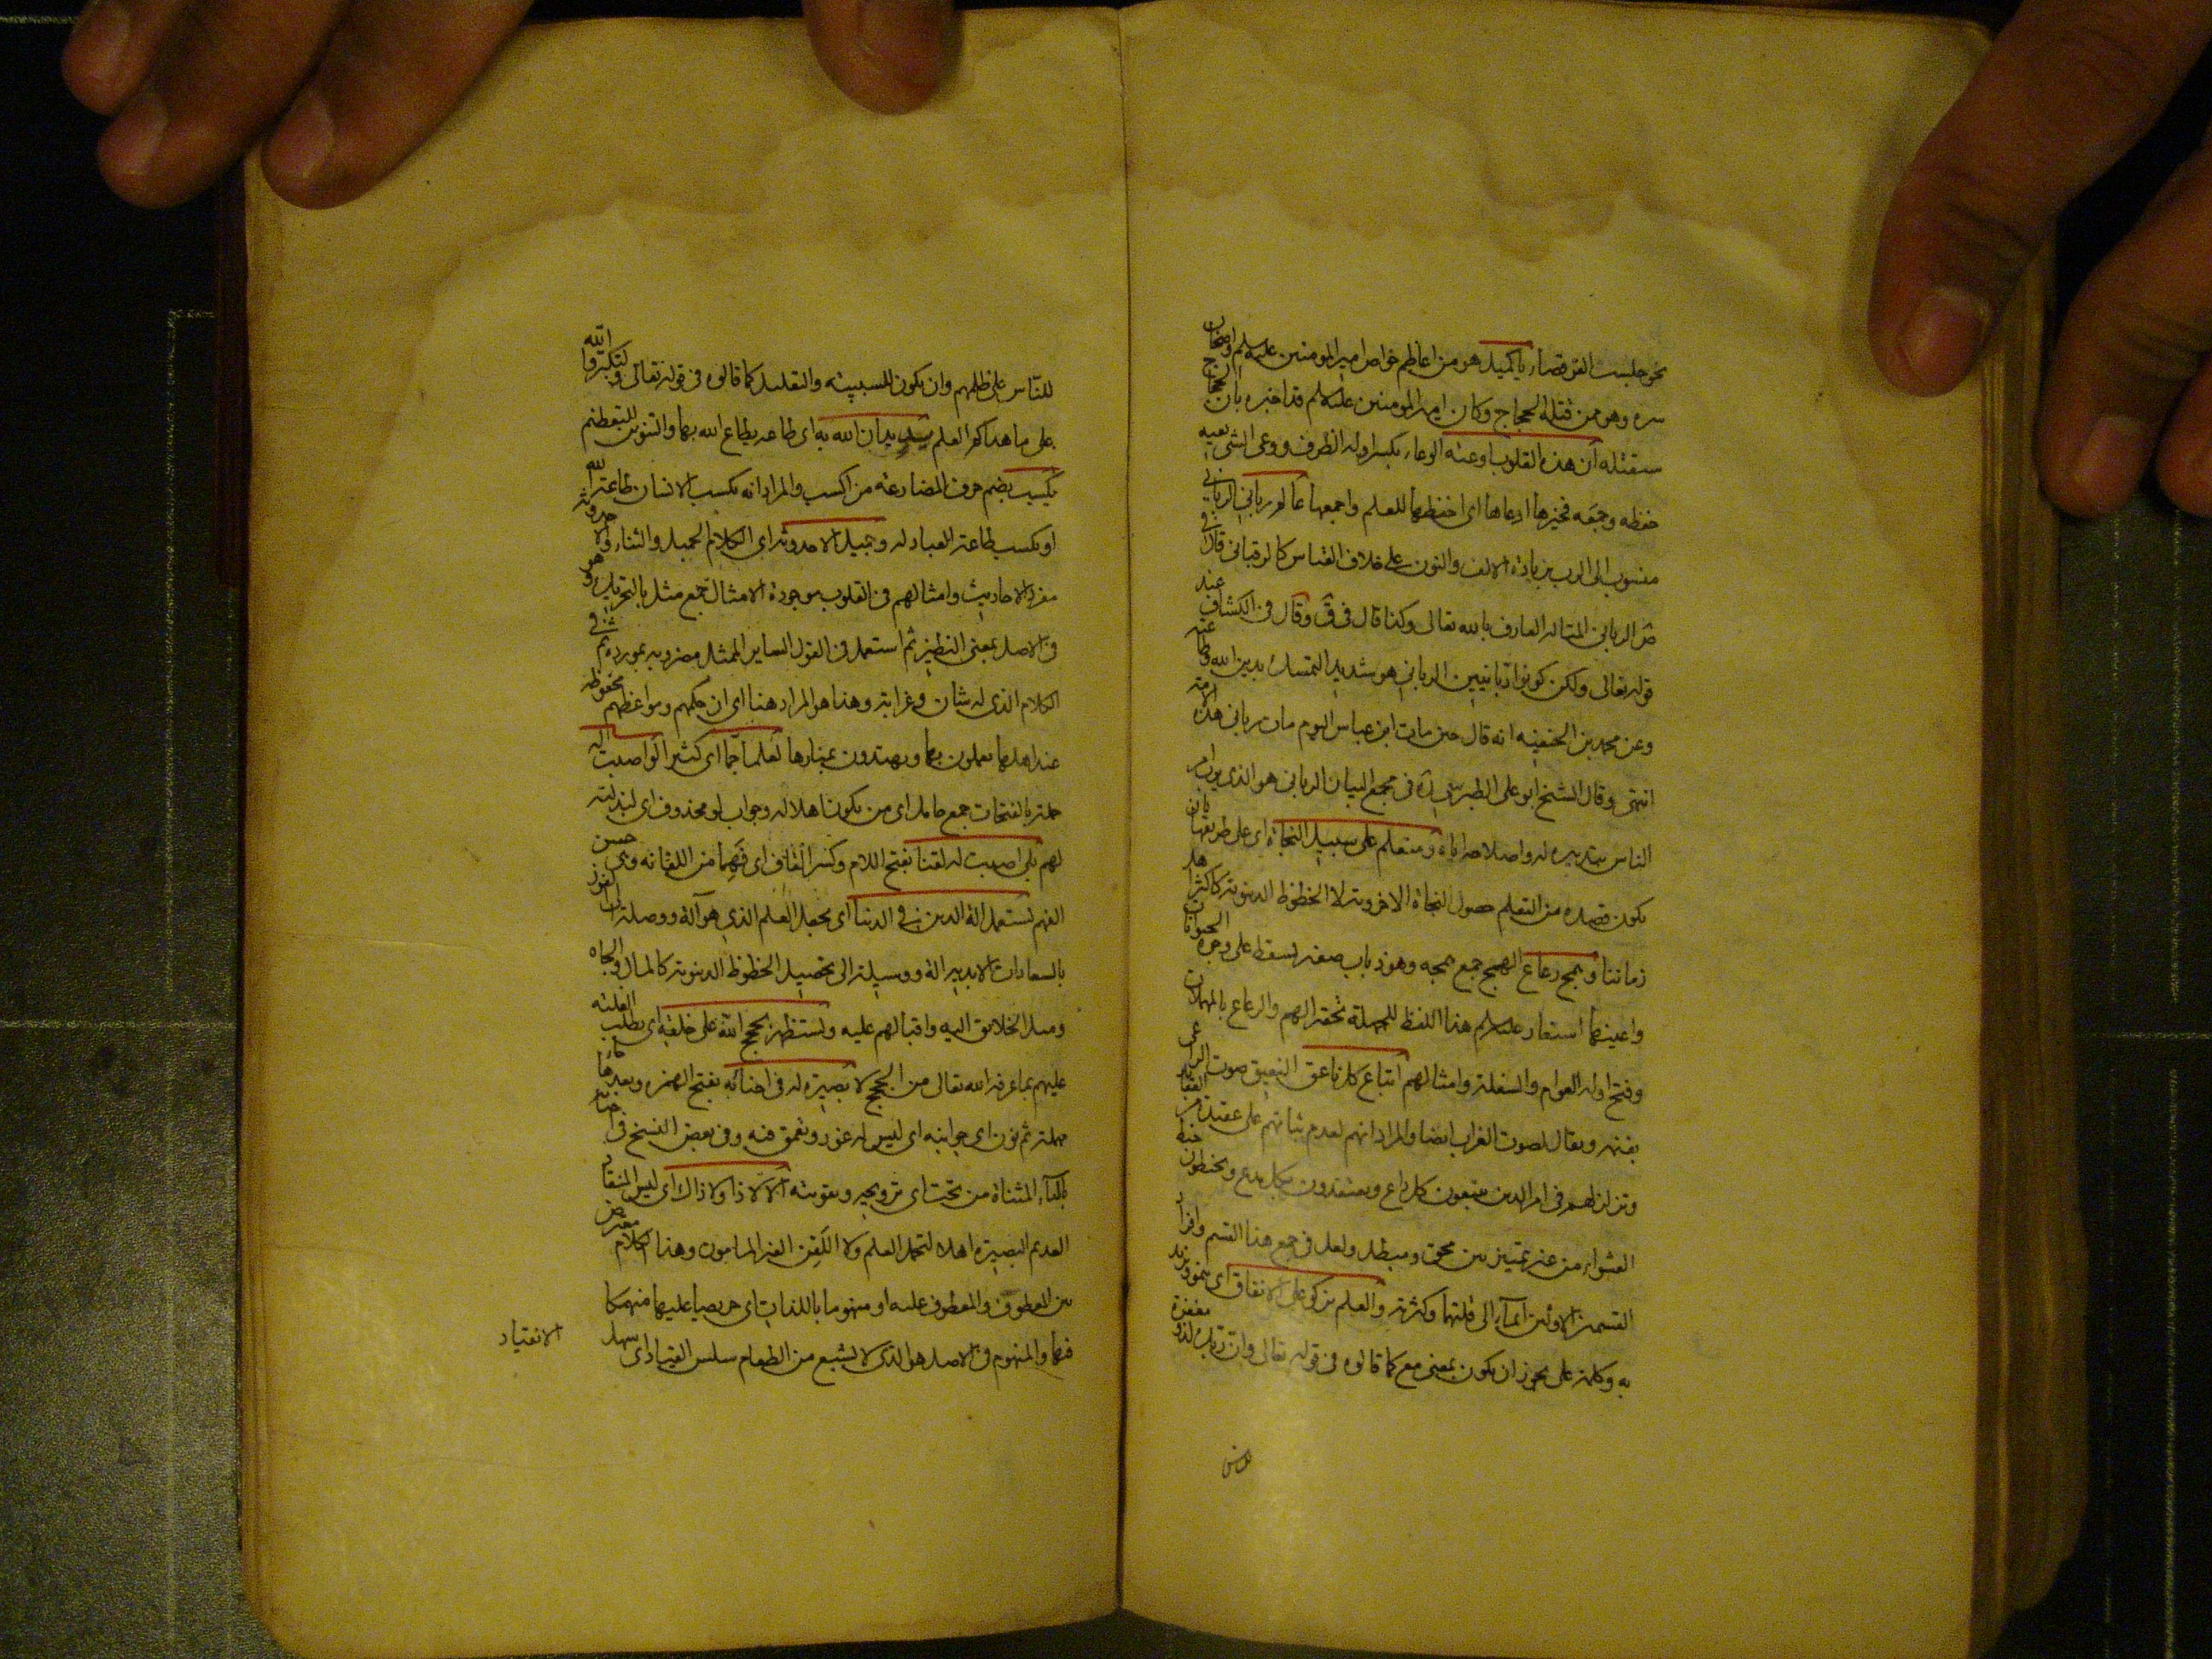 نحو جلست القرفصاء يا كميل هو من اعاظم خواص امير المؤمنين عليه السلم واصحاب
سره وهو ممن قتله الحجاج وكان امير المؤمنين عليه السلم قد اخبره بان الحجاج
سيقتله ان هذه القلوب اوعية الوعاء بكسر اوله الظرف ووعى الشئ يعيه
حفظه وجمعه فخيرها اوعاها اى احفظها للعلم واجمعها عالم ربانى الربانى
منسوب الى الرب بزيادة الالف والنون على خلاف القياس كالرقبانى قال فى
ص الربانى المتاله العارف بالله تعالى وكذا قال فى ق وقال فى الكشاف عند
قوله تعالى ولكن كونوا ربانيين الربانى هو شديد التمسك بدين الله وطاعته
وعن محمد بن الحنفية انه قال حين مات ابن عباس اليوم مات ربانى هذه الامة
انتهى وقال الشيخ ابو على الطبرسى ره فى مجمع البيان الربانى هو الذى يرب امر
الناس بتدبيره له واصلاحه اياه ومتعلم على سبيل النجاة اى على طريقها بان
يكون قصده من التعلم حصول النجاة الاخروية لا الحظوظ الدنيوية كاكثر اهل
زماننا وهمج رعاع الهمج جمع همجه وهو ذباب صغير يسقط على وجوه الحيوانات
واعينها استعار عليه السلم هذا اللفظ للجهلة تحقيرا لهم والرعاع بالمهملات
وفتح اوله العوام والسفلة وامثالهم اتباع كل ناعق النعيق صوت الراعى
بغنمه ويقال لصوت الغراب ايضا والمراد انهم لعدم ثباتهم على عقيدة من العقايد
وتزلزلهم فى امر الدين يتبعون كل داع ويعتقدون بكل مدع ويخبطون خبط
العشواء من غير تمييز بين محق ومبطل ولعل فى جمع هذا القسم وافراد
القسمين الاولين ايماء الى قلتهما وكثرته والعلم يزكو على الانفاق اى ينمو ويزيد
به وكلمة على يجوز ان يكون بمعنى مع كما قالوه فى قوله تعالى وان ربك لذو مغفرة
للناس
للناس على ظلمهم وان يكون للسببية والتعليل كما قالوه فى قوله تعالى ولتكبروا الله
على ما هداكم العلم دين يدان الله به اى طاعة يطاع الله بها والتنوين للتعظيم
يكسب بضم حرف المضارعة من اكسب والمراد انه يكسب الانسان طاعة الله
او يكسب طاعة العباد له وجميل الاحدوثة اى الكلام الجميل والثناء والاحدوثة
مفرد الاحاديث وامثالهم فى القلوب موجودة الامثال جمع مثل بالتحريك وهو
فى الاصل بمعنى النظير ثم استعمل فى القول الساير الممثل مضربه بمورده ثم فى
الكلام الذى له شان وغرابة وهذا هو المراد هنا اى ان حكمهم ومواعظهم محفوظة
عند اهلها يعملون بها ويهتدون بمنارها لعلما جما اى كثيرا لو اصبت له
حملة بالفتحات جمع حامل اى من يكون اهلا له وجواب لو محذوف اى لبذلته
لهم بلى اصبت له لقنا بفتح اللام وكسر القاف اى فهما من اللقانة وهى حسن
الفهم يستعمل الة الدين فى الدنيا اى يجعل العلم الذى هو آلة ووصلة الى الفوز
بالسعادات الابدية الة ووسيلة الى تحصيل الحظوظ الدنيوية كالمال والجاه
وميل الخلايق اليه واقبالهم عليه ويستظهر بحجج الله على خلقه اى يطلب الغلبة
عليهم بما عرفه الله تعالى من الحجج لا بصيرة له فى احنائه بفتح الهمزة وبعدها حاء
مهملة ثم نون اى جوانبه اى ليس له غور وتعمق فيه وفى بعض النسخ فى احيائه
بالياء المثناة من تحت اى ترويجه وتقويته الا لا ذا ولا ذاك اى ليس المنقاد
العديم البصيرة اهلا لتحمل العلم ولا اللقن الغير المامون وهذا الكلام معترض
بين المعطوف والمعطوف عليه او منهوما باللذات اى حريصا عليها منهمكا
فيها والمنهوم فى الاصل هو الذى لا يشبع من الطعام سلس القياد اى سهل
الانقياد